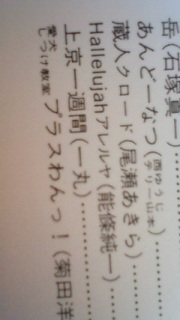 岳(石塚真一)………
あんどーなつ(西ゆうじ テリー山本)……
蔵人クロード(尾瀬あきら)……
Hallelujahアレルヤ(能條純一)……
上京一週間(一丸)………
愛犬しつけ教室 プラスわんっ!(菊田洋